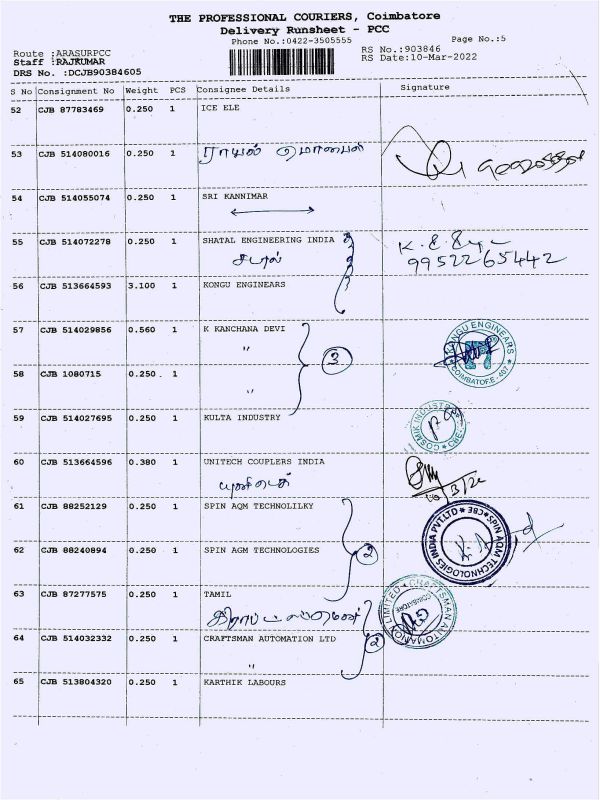 THE PROFESSIONAL COURIERS, Coimbatore
Delivery Runsheet - PCC
Phone No.:0422-3505555 Page No.:5
Route :ARASURPCC RS No.:903846
Staff :RAJKUMAR RS Date:10-Mar-2022
DRS No. :DCJB90384605
S No Consignment No Weight PCS Consignee Details Signature
52 CJB 87783469 0.250 1 ICE ELE
53 CJB 514080016 0.250 1 ராயல் மொபைல்
54 CJB 514055074 0.250 1 SRI KANNIMAR
55 CJB 514072278 0.250 1 SHATAL ENGINEERING INDIA
சடால் 9952265442
56 CJB 513664593 3.100 1 KONGU ENGINEARS
57 CJB 514029856 0.560 1 K KANCHANA DEVI
" 3
KONGU ENGINEARS
58 CJB 1080715 0.250 1
"
59 CJB 514027695 0.250 1 KULTA INDUSTRY
60 CJB 513664596 0.380 1 UNITECH COUPLERS INDIA
யுனிடெக்
61 CJB 88252129 0.250 1 SPIN AQM TECHNOLILKY
62 CJB 88240894 0.250 1 SPIN AGM TECHNOLOGIES 2
SPIN AQM TECHNOLOGIES INDIA PVT.LTD * CBE *
63 CJB 87277575 0.250 1 TAMIL
கிராப்ட்ஸ்மென்
64 CJB 514032332 0.250 1 CRAFTSMAN AUTOMATION LTD 2
CRAFTSMAN AUTOMATION LIMITED
COIMBATORE
"
65 CJB 513804320 0.250 1 KARTHIK LABOURS